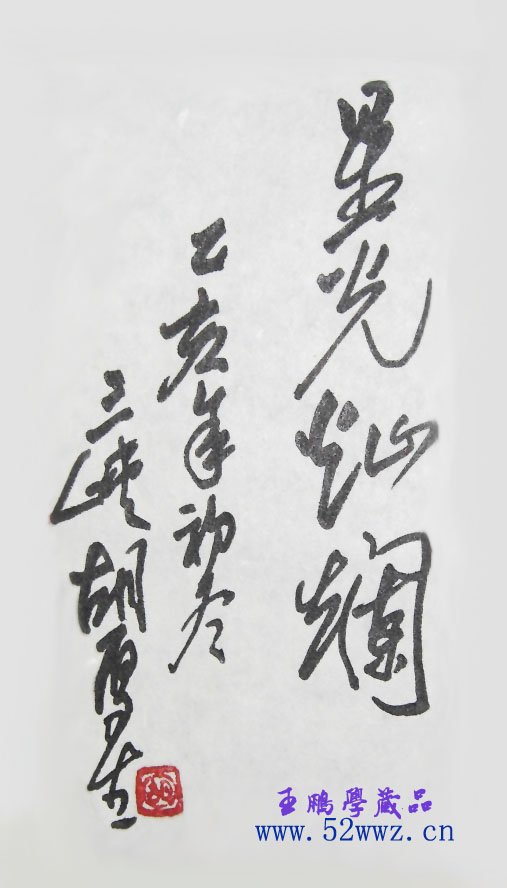 星光灿烂
乙亥年初冬
三峡胡
王鹏學藏品
www.52wwz.cn